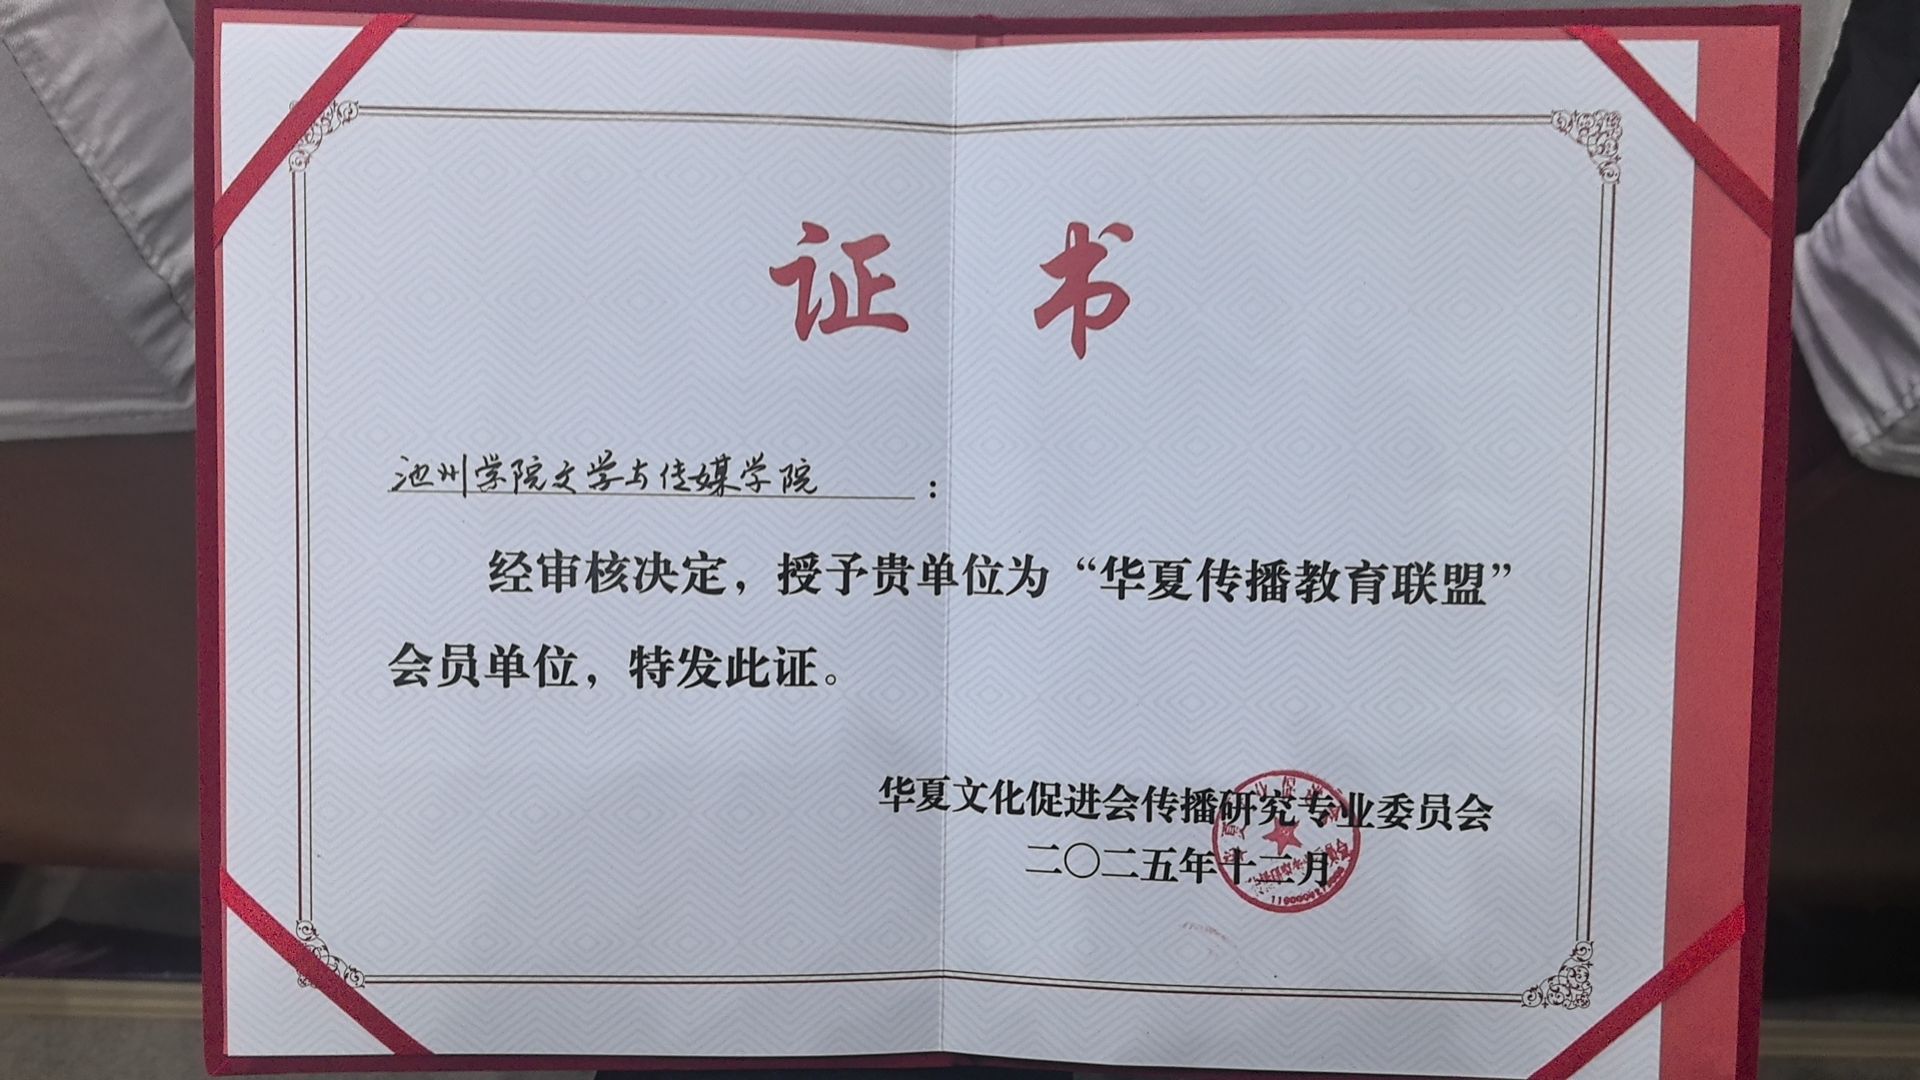 证 书
池州学院文学与传媒学院：
经审核决定，授予贵单位为“华夏传播教育联盟”
会员单位，特发此证。
华夏文化促进会传播研究专业委员会
二〇二五年十二月